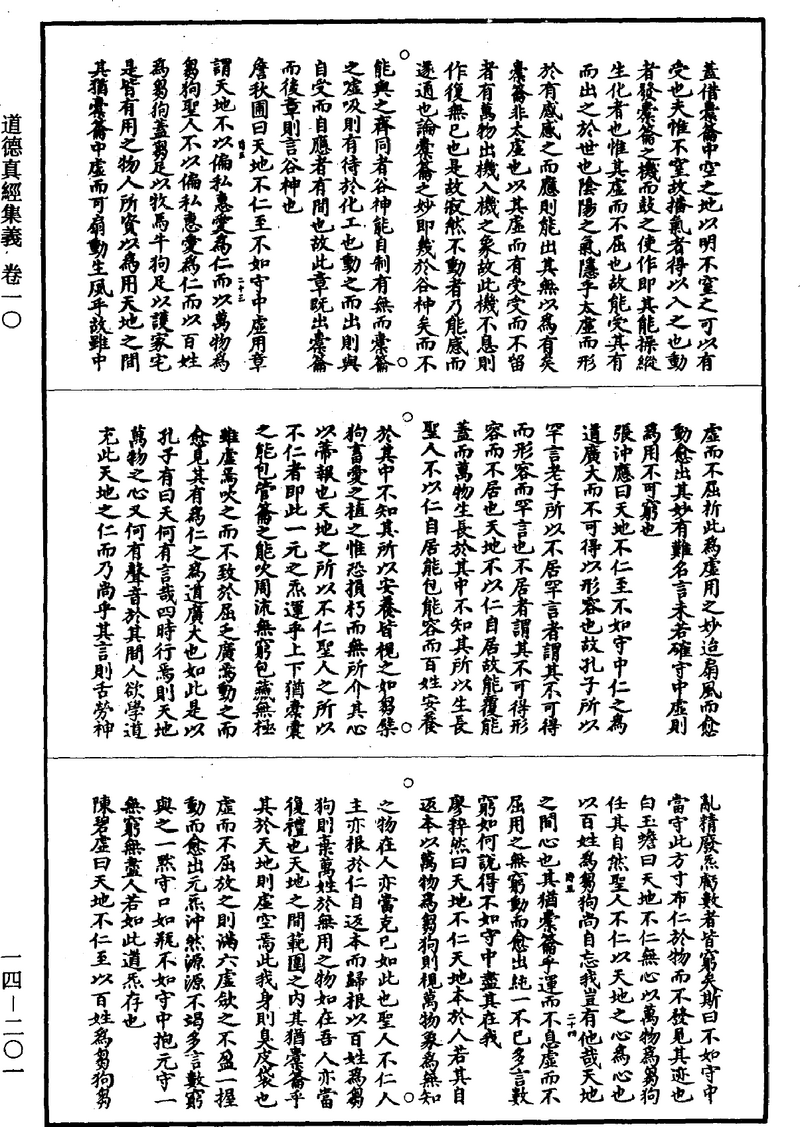 蓋借橐籥中空之地以明不窒之可以有
受也夫惟不窒故播氣者得以入之也動
者發橐籥之機而鼓之使作即其能操縱
生化者也惟其虛而不屈也故能受其有
而出之於世也陰陽之氣隱乎太虛而形
於有感感之而應則能出其無以為有矣
橐籥非太虛也以其虛而有受受而不留
者有萬物出機入機之象故此機不息則
作復無已也是故寂然不動者乃能感而
遂通也論橐籥之妙即幾於谷神矣而不
能與之齊同者谷神能自制有無而橐籥
之虛吸則有待於化工也動之而出則與
自受而自應者有間也故此章既出橐籥
而後章則言谷神也
詹秋圃曰天地不仁至不如守中虛用章
謂天地不以偏私惠愛為仁而以萬物為
芻狗聖人不以偏私惠愛為仁而以百姓
為芻狗蓋芻足以牧馬牛狗足以護家宅
是皆有用之物人所資以為用天地之間
其猶橐籥中虛而可扇動生風乎故雖中
虛而不屈祈此為虛用之妙迨扇風而愈
動愈出其妙有難名言未若確守中虛則
為用不可窮也
張沖應曰天地不仁至不如守中仁之為
道廣大而不可得以形容也故孔子所以
罕言老子所以不居罕言者謂其不可得
而形容而罕言也不居者謂其不可得形
容而不居也天地不以仁自居故能覆能
蓋而萬物生長於其中不知其所以生長
聖人不以仁自居能包能容而百姓安養
於其中不知其所以安養皆視之如芻槩
狗畜愛之植之惟恐損朽而無所介其心
以蔕報也天地之所以不仁聖人之所以
不仁者即此一元之炁運乎上下猶橐囊
之能包管籥之能吹周流無窮包藏無極
雖虛焉吹之而不致於屈之廣焉動之而
愈見其有為仁之為道廣大也如此是以
孔子有曰天何有言哉四時行焉則天地
萬物之心又何有聲音於其間人欲學道
充此天地之仁而乃尚乎其言則舌勞神
亂精廢炁虧數者皆窮矣斯曰不如守中
當守此方寸布仁於物而不發見其迹也
白玉蟾曰天地不仁無心以萬物為芻狗
任其自然聖人不仁以天地之心為心也
以百姓為芻狗尚自忘我豈有他哉天地
之間心也其猶橐籥乎運而不息虛而不
屈用之無窮動而愈出純一不已多言數
窮如何說得不如守中盡其在我
廖粹然曰天地不仁天地本於人若其自
返本以萬物為芻狗則視萬物象為無知
之物在人亦當克已如此也聖人不仁人
主亦根於仁自返本而歸根以百姓為芻
狗則棄萬姓於無用之物如在吾人亦當
復禮也天地之間範圍之內其猶橐籥乎
其於天地則虛空焉此我身則臭皮袋也
虛而不屈放之則滿六虛歛之不盈一握
動而愈出元炁沖然源源不竭多言數窮
與之一默守口如瓶不如守中抱元守一
無窮無盡人若如此道炁存也
陳碧虛曰天地不仁至以百姓為芻狗芻
二十三
二十四
道德真經集義 卷一〇
一四—二〇一